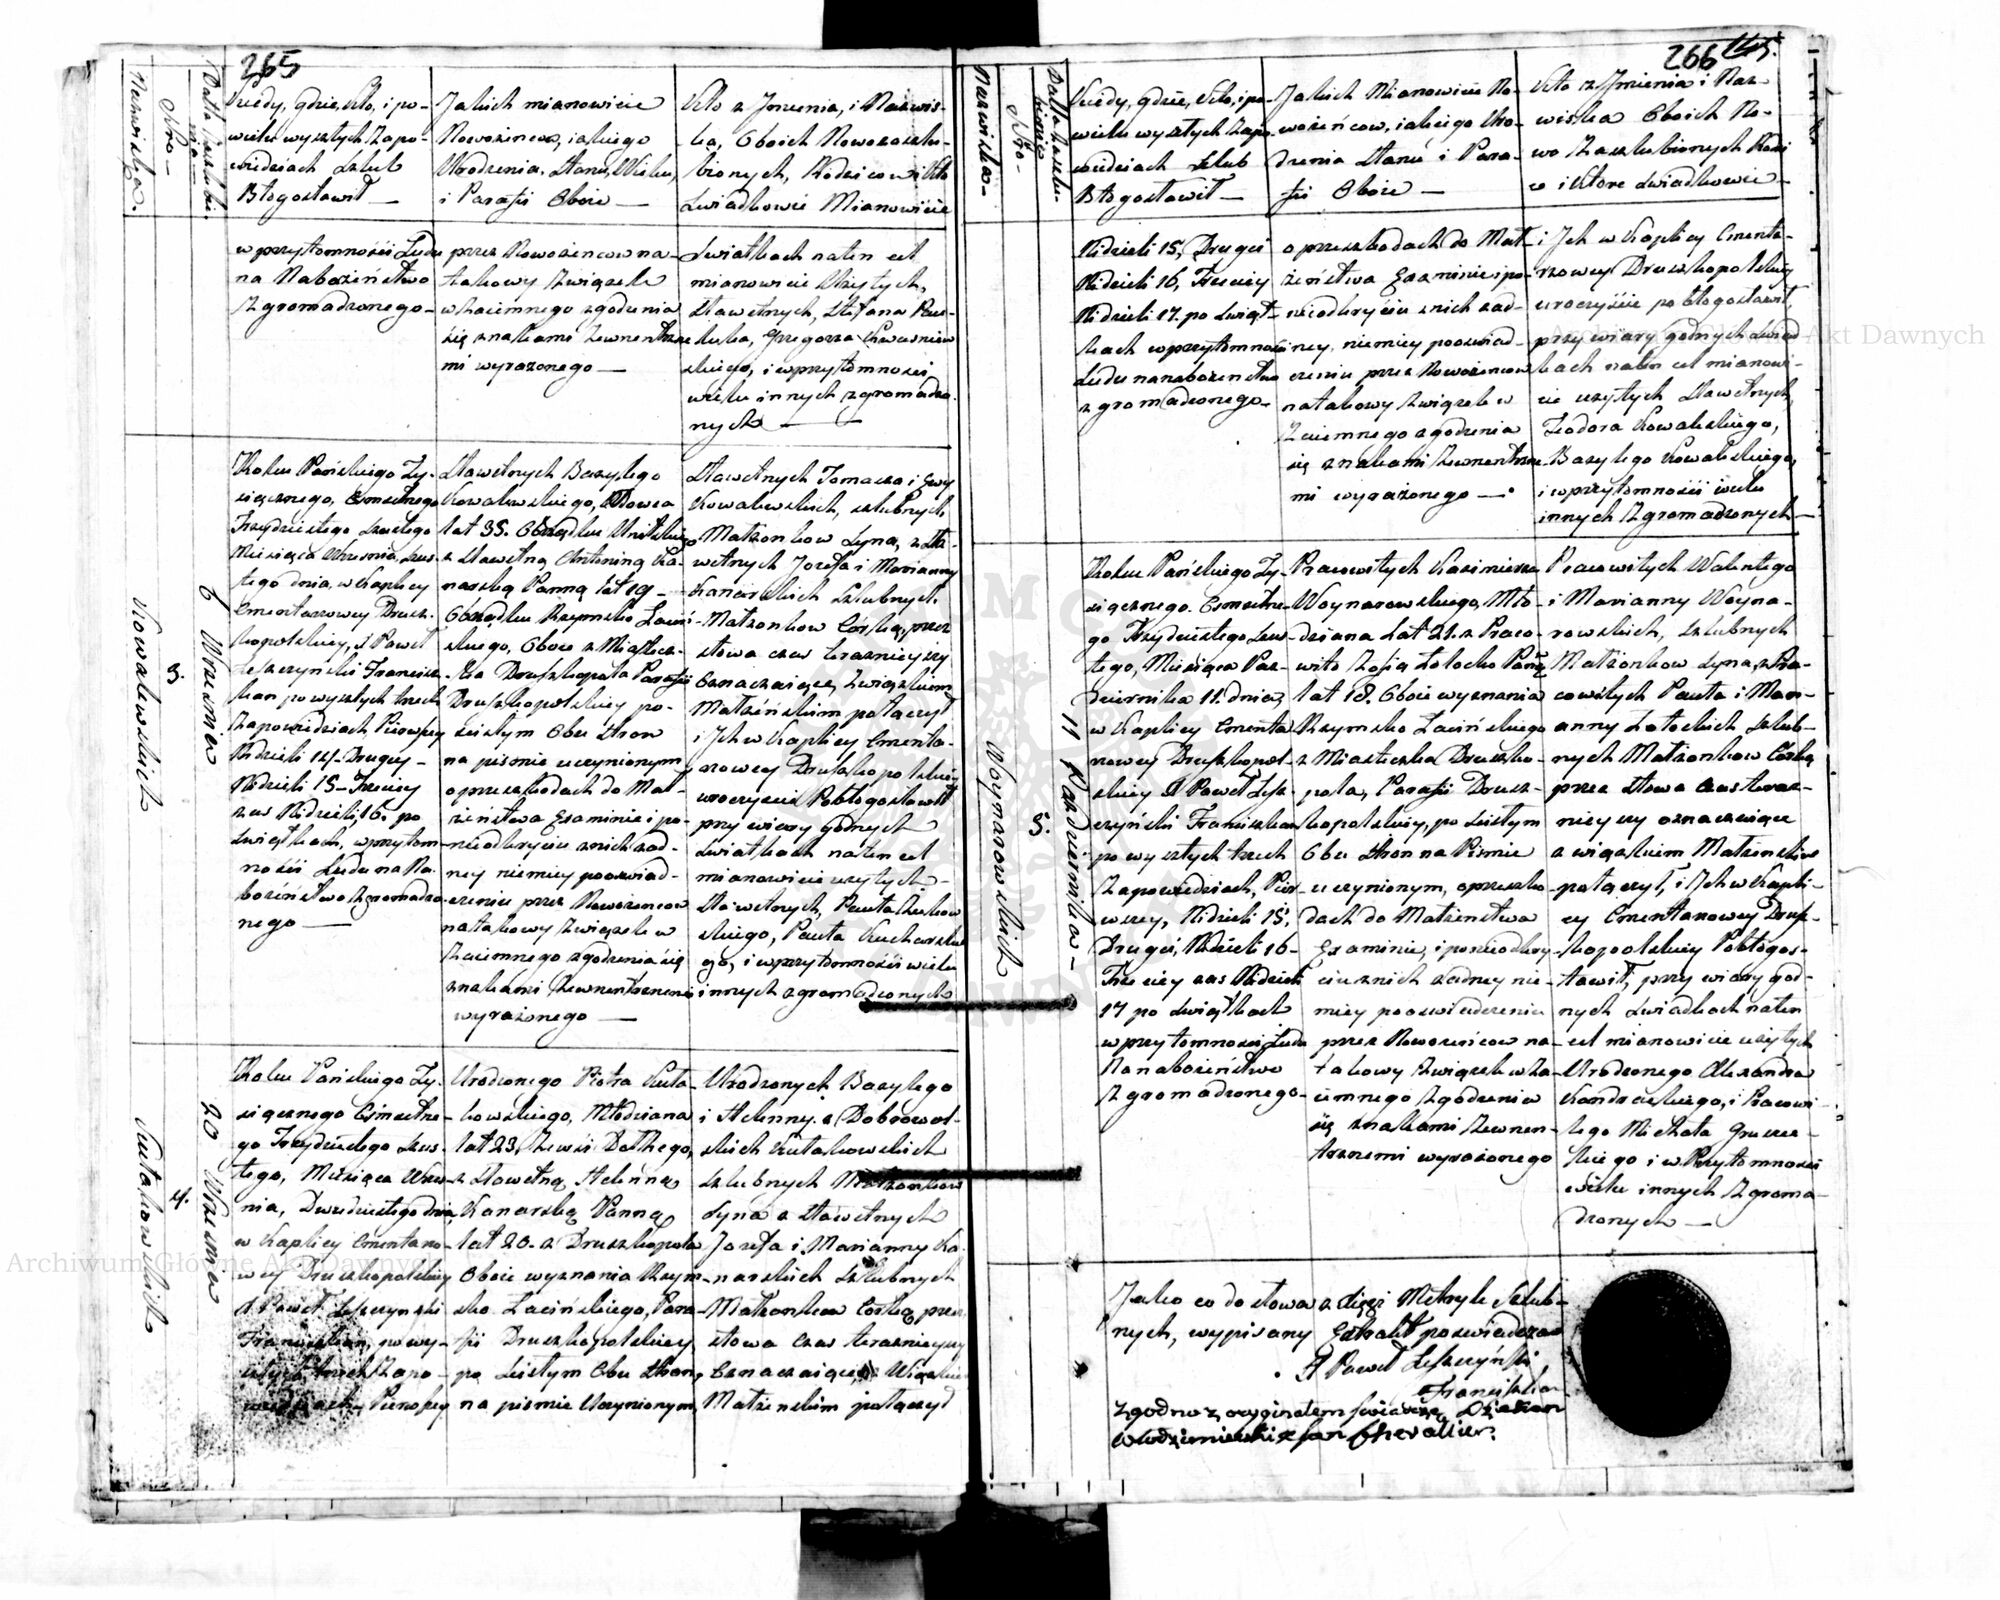 265
Nazwiska.
Nro
Kiedy, gdzie, Kto, i po-
wielu wyszłych Zapo-
wiedziach szlub
Błogosławił —
Jakich mianowicie
Nowożeńcow, iakiego
Urodzenia, Stanu, Wieku,
i Parafii Oboie —
Kto z Imienia, i Nazwis-
ka, Oboich Nowozaszlu-
bionych, Rodzicow i Kto
Swiadkowie Mianowicie
w przytomności Ludu
na Nabożeństwo
Zgromadzonego
przez Nowożencow na
takowy Związek
wzaiemnego zgodzenia
się znakami Zewnentrzne
mi wyrażonego —
Swiatkach na ten cel
mianowicie Użytych,
Sławetnych, Stefana
Grzegorza
i w przytomności
wielu innych zgromadzo
nych —
Kowalewskich
3.
6 Wrzesnia
Roku Pańskiego Ty-
siącznego, Osmsetnego
Trzydziestego szustego
Miesiąca Wrzesnia, szus-
tego dnia, w Kaplicy
Cmentarzowey Drusz-
kopolskiey, X Paweł
Leszczynski Francisz-
kan po wyszłych trzech
Zapowiedziach Pierwszey
Niedzieli 14 Drugiey
Niedzieli 15 Trzeciey
zas Niedzieli 16. po
Swiątkach, w przytom-
ności Ludu na Na-
bożeństwo Zgromadzo
nego —
Sławetnych Bazylego
Kowalewskiego, Wdowca
lat 35. Obrządku Unitskiego
z Sławetną Antoniną Ka-
narską Panną lat 19 —
Obrządku Rzymsko Łaciń-
skiego, Oboie z Miastecz-
ka Druszkopola Parafii
Druszkopolskiey po-
scisłym Obu Stron
na pismie uczynionym
o przeszkodach do Mał-
żeństwa Examinie i po-
nieodkryciu z nich żad-
ney niemiey poświad-
czeniu przez Nowożencow
na takowy Związek w
Zaiemnego zgodzenia się
znakami Zewnentrznemi
wyrażonego —
Sławetnych Tomasza i Ewy
Kowalewskich, szlubnych
Małżonkow Syna, z Sła-
wetnych Jozefa i Marianny
Kanarskich Szlubnych
Małżonkow Córką, przez
słowa czas teraznieyszy
Oznaczaiące, Związkiem
Małżeńskim połączył
i Ich w Kaplicy Cmenta-
rzowey Druszkopolskiey
uroczyscie Pobłogosławił
przy wiary godnych
Swiatkach na ten cel
mianowicie użytych
Sławetnych, Pawła
skiego, Pawła Kucharskie
go, i w przytomności wielu
innych zgromadzonych
4.
20 Wrzesnia
Roku Pańskiego Ty-
siącznego Osmsetne-
go Trzydziestego szus-
tego, Miesiąca Wrze-
snia, Dwudziestego dnia
w Kaplicy Cmentarzo-
wey Druszkopolskiey
X Paweł Leszczynski
Franciszkan, po wy-
szłych trzech Zapo-
wiedziach, Pierwszey
Urodzonego Piotra
kowskiego, Młodziana
lat 23, Zewsi
z Sławetną Helenną
Kanarską Panną
lat 20. z Druszkopola
Oboie wyznania Rzym-
sko Łacińskiego, Para-
fii Druszkopolskiey
po Scisłym Obu Stron
na pismie Uczynionym
Urodzonych Bazylego
i Helenny z Dobrowol-
skich
Szlubnych Małżonkow
Syna z Sławetnych
Jozefa i Marianny Ka-
narskich Szlubnych
Małżonkow Córką, przez
słowa Czas teraznieyszy
Oznaczaiące
Małżenskim połączył
266 145.
Nazwiska
Nro
Kiedy, gdzie, Kto, i po-
wielu wyszłych Zapo-
wiedziach szlub
Błogosławił —
Jakich Mianowicie No-
wożeńcow, iakiego Uro-
dzenia Stanu i Para-
fii Oboie —
Kto z Imienia i Naz-
wiska Oboich No-
wo Zaszlubionych Rodzi
w i Które Swiadkowie
Niedzieli 15, Drugiey
Niedzieli 16, Trzeciey
Niedzieli 17. po Swiąt-
kach w przytomności
Ludu na nabożenstwo
zgromadzonego —
o przeszkodach do Mał-
żeństwa Examinie i po-
nieodkryciu z nich żad-
ney, niemiey poswiad-
czeniu przez Nowożencow
na takowy Związek w
Zaiemnego zgodzenia
się znakami Zewnentrzne
mi wyrażonego —
i Ich w Kaplicy Cmenta-
rzowey Druszkopolskiey
uroczyscie pobłogosławił,
przy wiary godnych Swiad
kach na ten cel mianowi-
cie użytych Sławetnych,
Teodora Kowalskiego,
Bazylego Kowalskiego,
i w przytomności wielu
innych Zgromadzonych —
Woynarowskich
5.
11 Pazdziernika —
Roku Pańskiego Ty-
siącznego Osmsetne-
go Trzydziestego szus-
tego, Miesiąca Paz-
dziernika 11. dnia,
w Kaplicy Cmenta
rzowey Druszkopol-
skiey X Paweł Lesz-
czyński Franciszkan
po wyszłych trzech
Zapowiedziach, Pier-
wszey, Niedzieli 15,
Drugiey, Niedzieli 16 —
Trzeciey zas Niedzieli
17 po Swiątkach
w przytomności Ludu
Na nabożeństwo
Zgromadzonego —
Pracowitych Kazimierza
Woynarowskiego, Mło-
dziana Lat 21. z Praco-
witą Zofią Panną
lat 18. Oboie wyznania
Rzymsko Łacińskiego
z Miasteczka Druszko-
pola, Parafii Drusz-
kopolskiey, po scisłym
Obu Stron na Pismie
uczynionym, o przeszko-
dach do Małżenstwa
Examinie, i ponieodkry-
ciu z nich żadney nie-
miey poswiadczeniu
przez Nowożencow na
takowy Związek w Za-
iemnego Zgodzenia
się znakami Zewnen-
trznemi wyrażonego
Pracowitych Walentego
i Marianny Woyna-
rowskich, szlubnych
Małżonkow Syna, z Pra-
cowitych Pawła i Mary-
anny Szlub-
nych Małżonkow Córką
przez Słowa czas teraz-
nieyszy oznaczaiące
związkiem Małżenskim
połączył, i Ich w Kapli-
cy Cmentarzowey Drusz-
kopolskiey Pobłogos-
ławił, przy wiary god-
nych Swiadkach na ten
cel mianowicie użytych
Urodzonego Alexandra
i Pracowi-
tego Michała
skiego i w Przytomności
wielu innych Zgroma-
dzonych —
Jako co do słowa z Xięgi Metryk Szlub-
nych, wypisany Extrakt poswiadczam
X Paweł Leszczyński,
Franciszkan
Zgodno z oryginałem swiadczę Dziekan
Włodzimierski X Jan Chevallier.
Archiwum Główne Akt Dawnych
Archiwum Główne Akt Dawnych